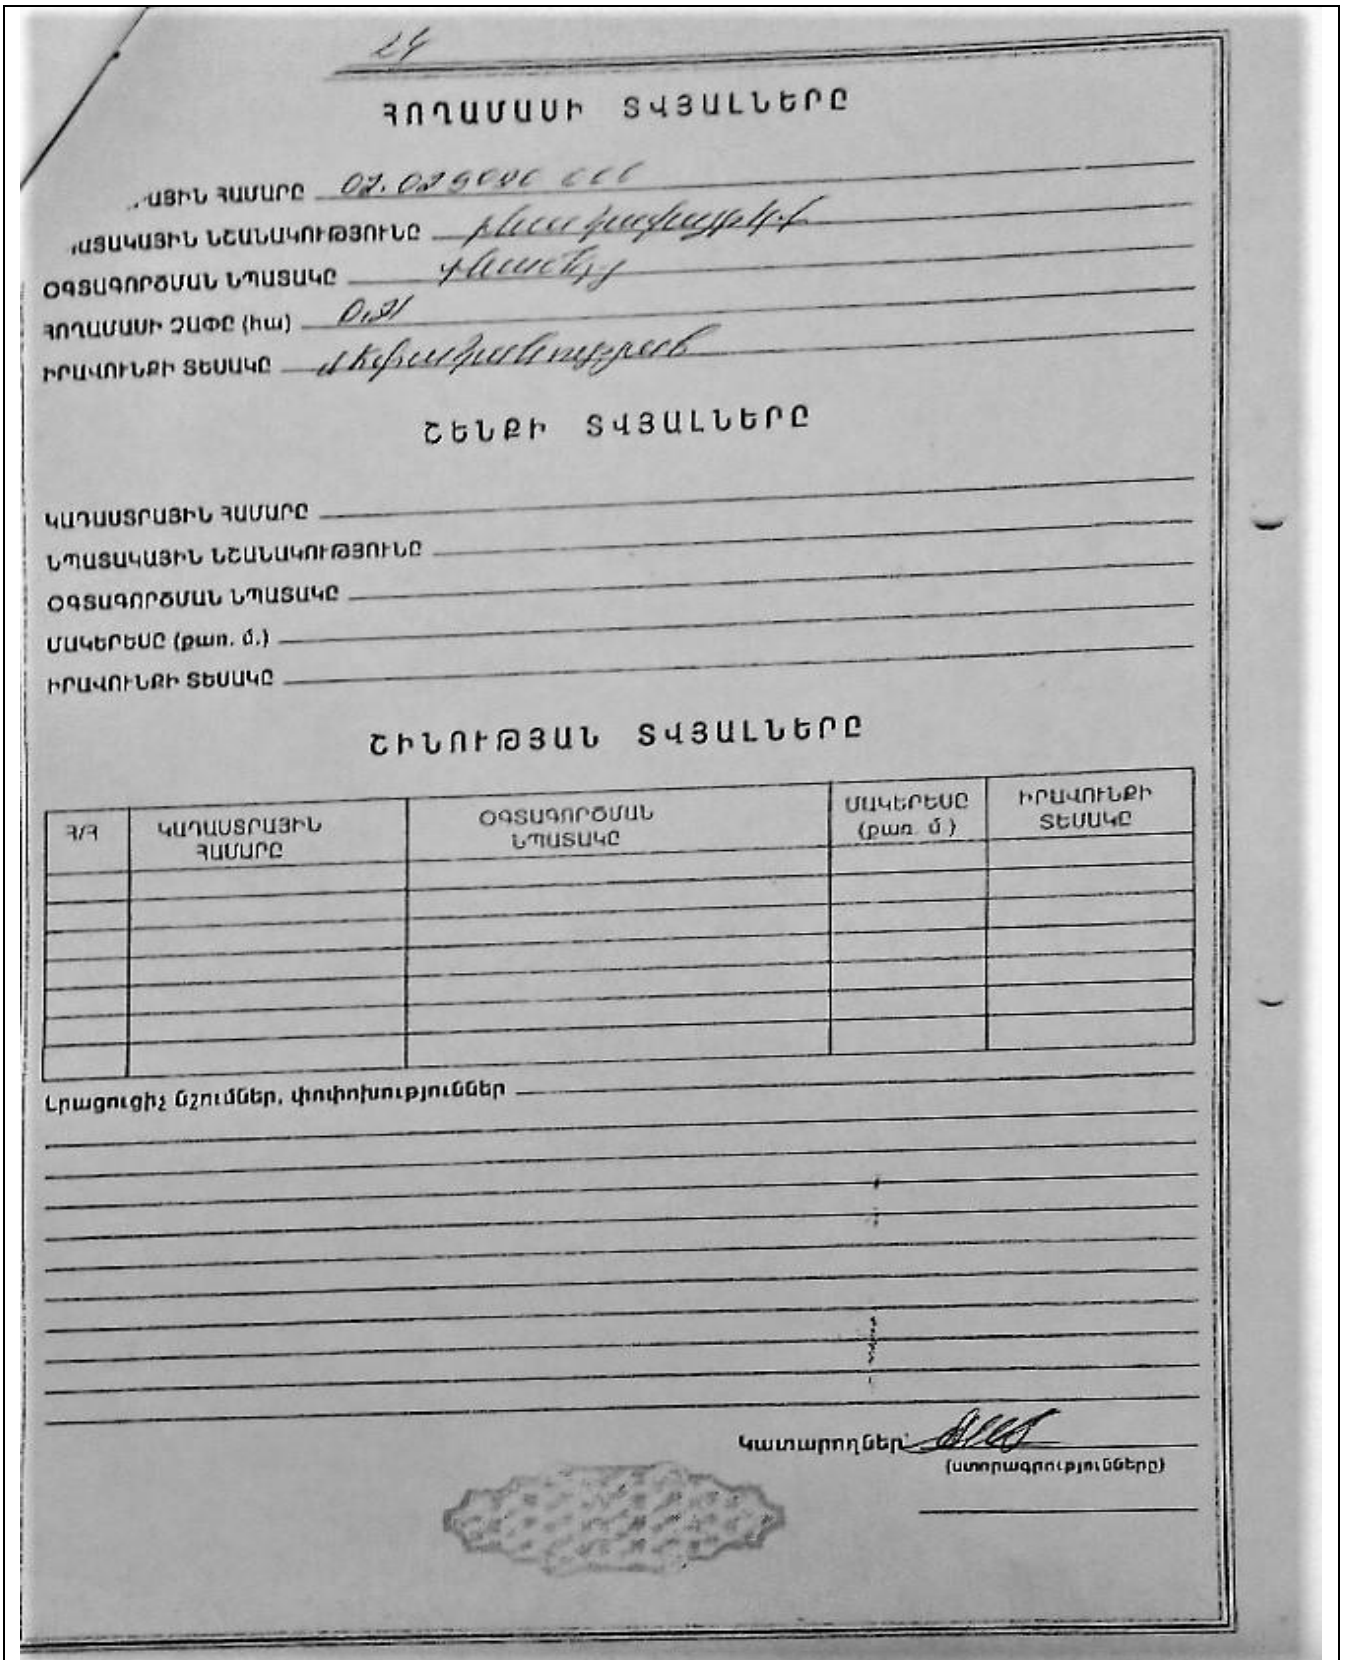 24
ՀՈՂԱՄԱՍԻ ՏՎՅԱԼՆԵՐԸ
ԱՅԻՆ ՀԱՄԱՐԸ
ԱՏԱԿԱՅԻՆ ՆՇԱՆԱԿՈՒԹՅՈՒՆԸ բնակավայրերի
ՕԳՏԱԳՈՐԾՄԱՆ ՆՊԱՏԱԿԸ
ՀՈՂԱՄԱՍԻ ՉԱՓԸ (հա) 0,21
ԻՐԱՎՈՒՆՔԻ ՏԵՍԱԿԸ սեփականություն
ՇԵՆՔԻ ՏՎՅԱԼՆԵՐԸ
ԿԱԴԱՍՏՐԱՅԻՆ ՀԱՄԱՐԸ
ՆՊԱՏԱԿԱՅԻՆ ՆՇԱՆԱԿՈՒԹՅՈՒՆԸ
ՕԳՏԱԳՈՐԾՄԱՆ ՆՊԱՏԱԿԸ
ՄԱԿԵՐԵՍԸ (քառ. մ.)
ԻՐԱՎՈՒՆՔԻ ՏԵՍԱԿԸ
ՇԻՆՈՒԹՅԱՆ ՏՎՅԱԼՆԵՐԸ
Հ/Հ ԿԱԴԱՍՏՐԱՅԻՆ ՀԱՄԱՐԸ ՕԳՏԱԳՈՐԾՄԱՆ ՆՊԱՏԱԿԸ ՄԱԿԵՐԵՍԸ (քառ. մ.) ԻՐԱՎՈՒՆՔԻ ՏԵՍԱԿԸ
Լրացուցիչ նշումներ, փոփոխություններ
Կատարողներ՝
(ստորագրությունները)